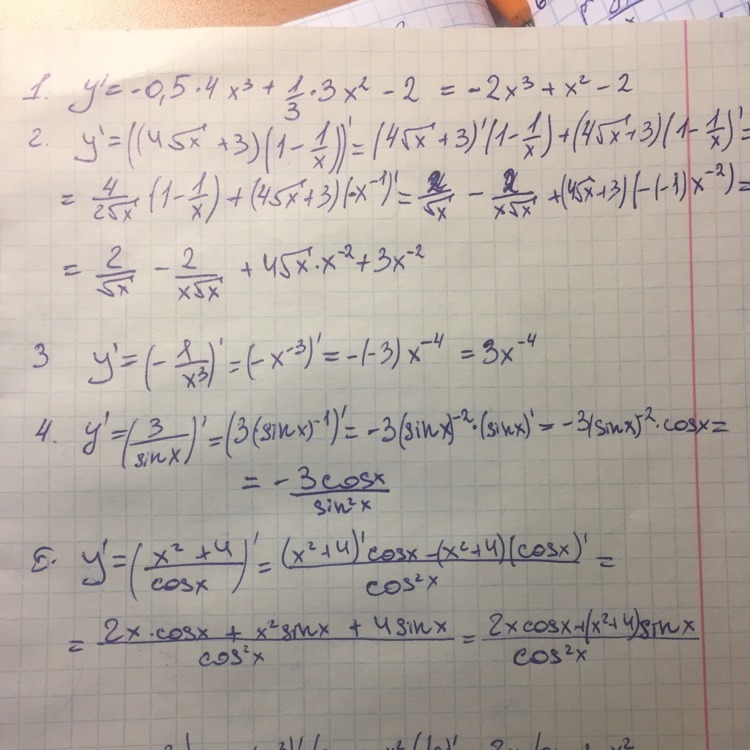 1. y' = -0,5·4x³ + 1/3·3x² - 2 = -2x³ + x² - 2
2. y' = ((4√x + 3)(1 - 1/x))' = (4√x + 3)'(1 - 1/x) + (4√x + 3)(1 - 1/x)' =
= 4/2√x (1 - 1/x) + (4√x + 3)(-x⁻¹)' = 2/√x - 2/x√x + (4√x + 3)(-(-1)x⁻²) =
= 2/√x - 2/x√x + 4√x·x⁻² + 3x⁻²
3 y' = (-1/x³)' = (-x⁻³)' = -(-3)x⁻⁴ = 3x⁻⁴
4. y' = (3/sinx)' = (3(sinx)⁻¹)' = -3(sinx)⁻²·(sinx)' = -3(sinx)⁻²·cosx =
= -3cosx/sin²x
5. y' = (x² + 4/cosx)' = (x² + 4)'cosx - (x² + 4)(cosx)'/cos²x =
= 2x·cosx + x²sinx + 4sinx/cos²x = 2xcosx + (x² + 4)sinx/cos²x